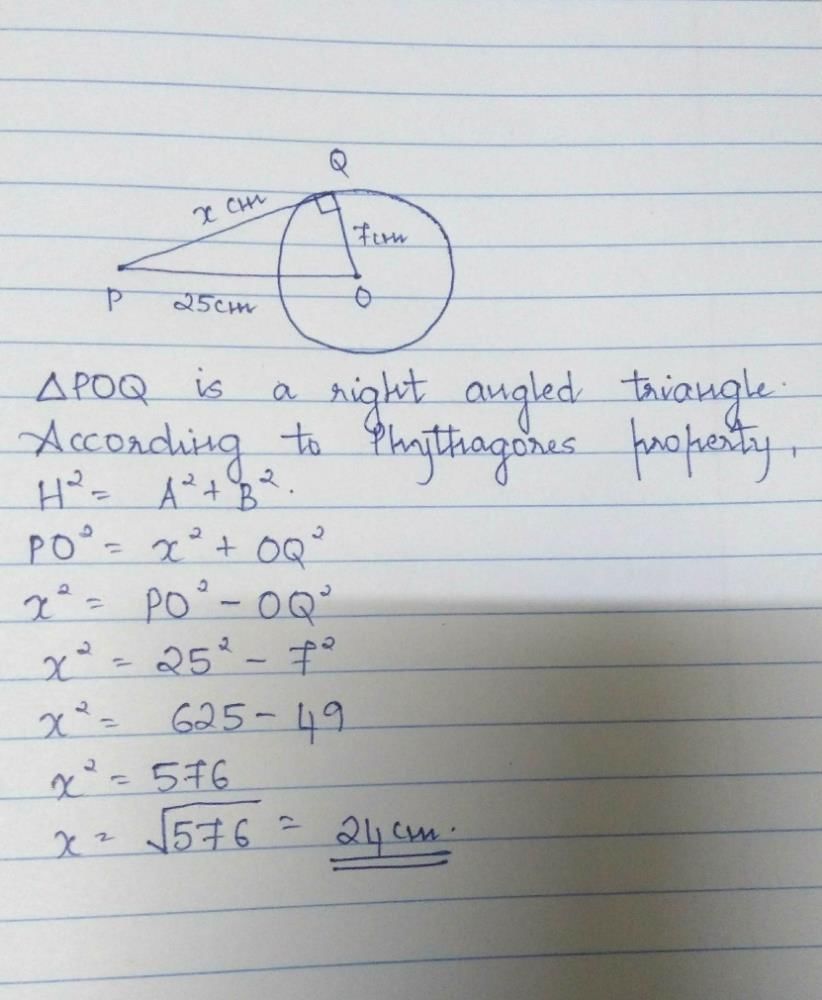 Q
x cm
7cm
P
25cm
O
△POQ is a right angled triangle.
According to Phythagores property,
H² = A² + B².
PO² = x² + OQ²
x² = PO² - OQ²
x² = 25² - 7²
x² = 625 - 49
x² = 576
x = √576 = 24 cm.